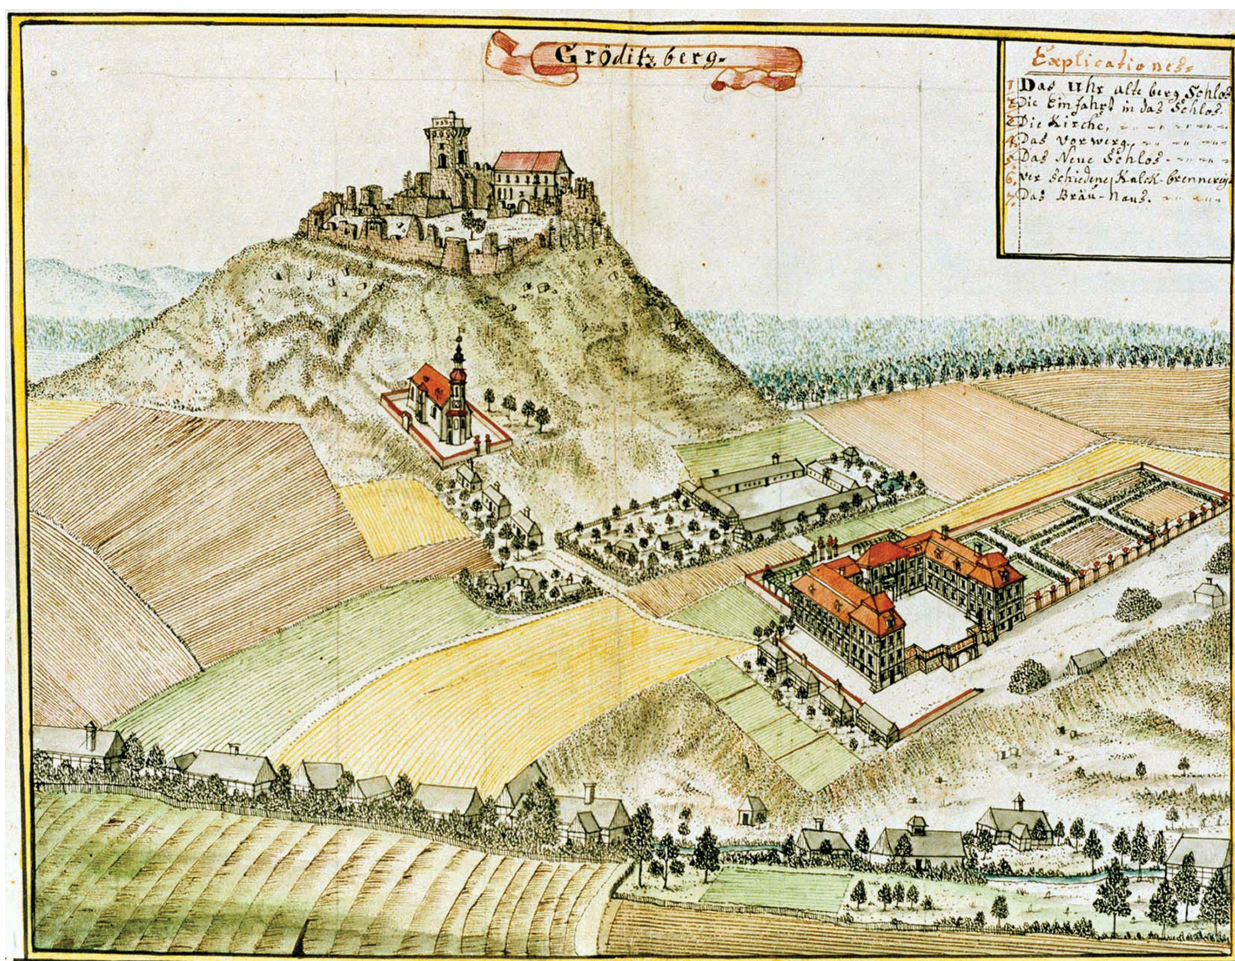 Gröditzberg.
Explicationes.
1. Das Uhr alte berg Schlos
2. Die Einfahrt in das Schlos.
3. Die Kirche,
4. Das Vorwerg,
5. Das Neue Schlos
6. Ver schiedene Kalck-brennerey
7. Das Bräu-Haus.